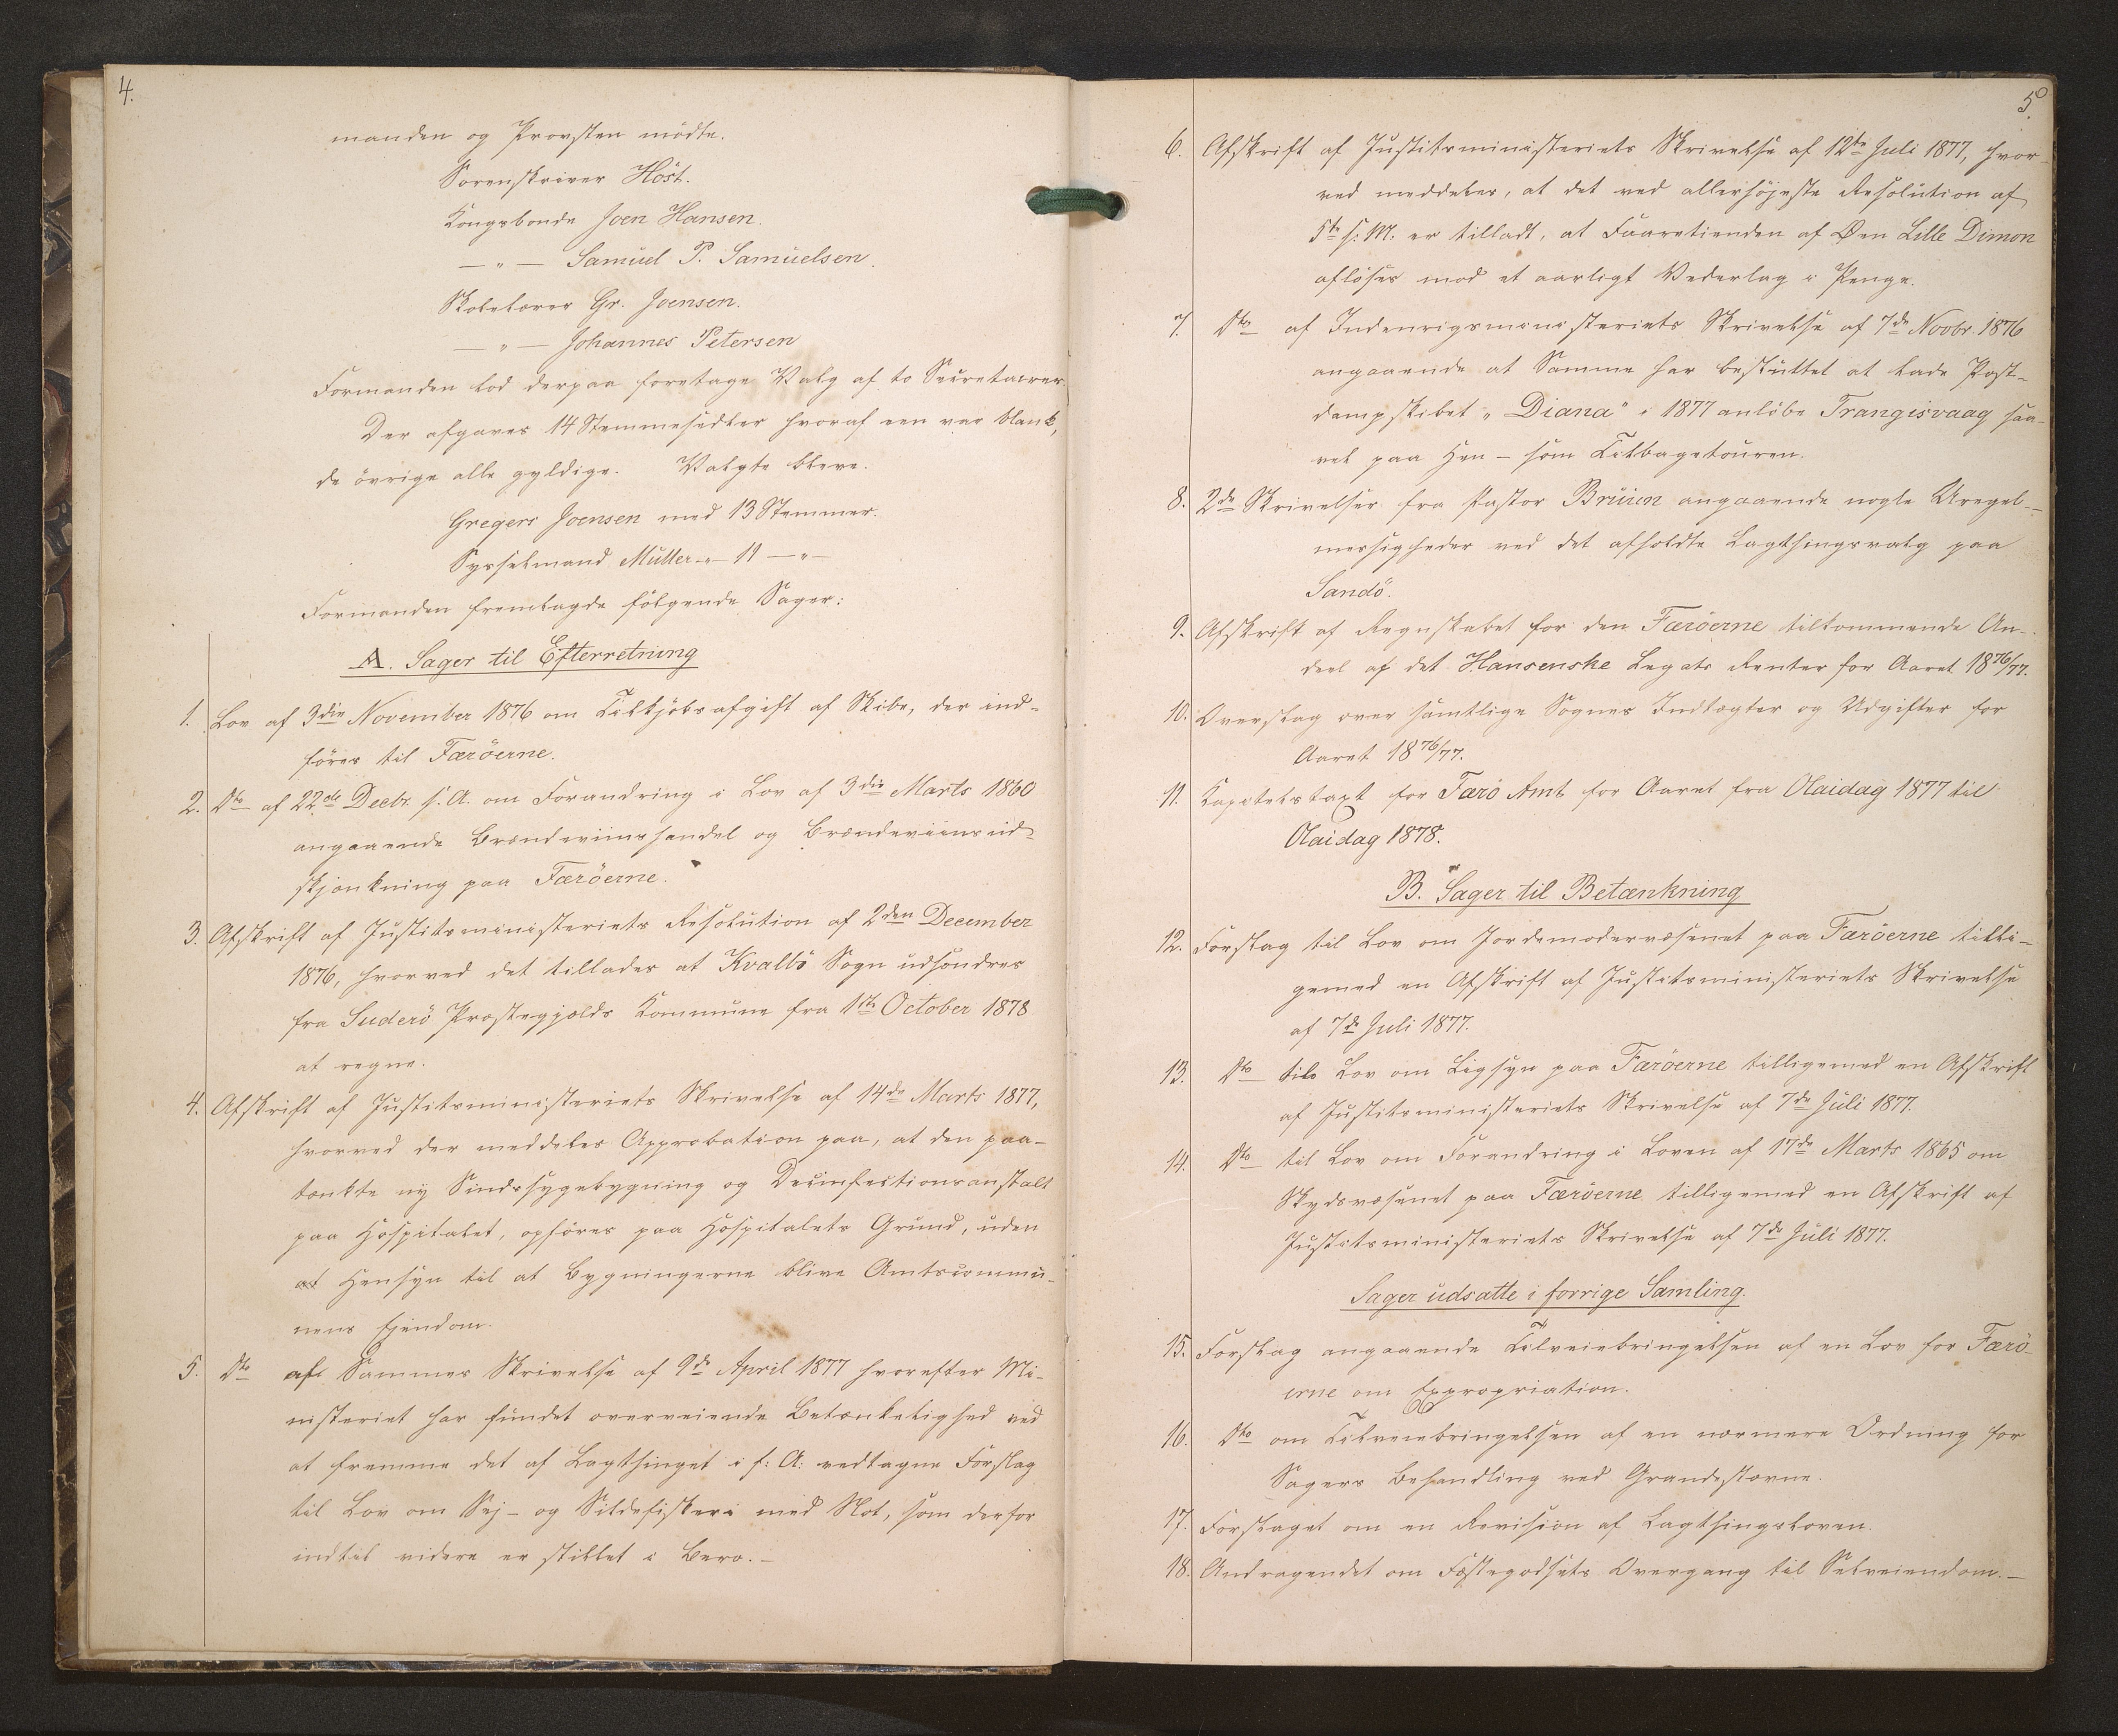 4.
manden og Provsten mödte.
Sorenskriver Höst.
Kongsbonde Joen Hansen.
— " — Samuel P. Samuelsen.
Skolelærer Gr. Joensen.
— " — Johannes Petersen
Formanden lod derpaa foretage Valg af to Secretairer.
Der afgaves 14 Stemmesedler hvoraf een var blank,
de övrige alle gyldige. Valgte bleve.
Gregers Joensen med 13 Stemmer.
Sysselmand Müller -"- 11 — " —
Formanden fremlagde fölgende Sager:
A. Sager til Efterretning
1. Lov af 3die November 1876 om Tilkjöbsafgift af Skibe, der ind-
föres til Færöerne.
2. Dto af 22de Decbr. s. A. om Forandring i Lov af 3die Marts 1860
angaaende Brændeviinshandel og Brændeviinsud-
skjænkning paa Færöerne.
3. Afskrift af Justitsministeriets Resolution af 2den December
1876, hvorved det tillades at Kvalbö Sogn udsondres
fra Suderö Præstegjælds Kommune fra 1ste October 1878
at regne.
4. Afskrift af Justitsministeriets Skrivelse af 14de Marts 1877,
hvorved der meddeles Approbation paa, at den paa-
tænkte ny Sindssygebygning og Desinfectionsanstalt
paa Hospitalet, opföres paa Hospitalets Grund, uden
at Hensyn til at Bygningerne blive Amtscommu-
nens Ejendom.
5. Dto af Sammes Skrivelse af 9de April 1877 hvorefter Mi-
nisteriet har fundet overveiende Betænkelighed ved
at fremme det af Lagthinget i f: A: vedtagne Forslag
til Lov om Sej- og Sildefiskeri med Not, som derfor
indtil videre er stillet i Bero. –
5.
6. Afskrift af Justitsministeriets Skrivelse af 12te Juli 1877, hvor-
ved meddeles, at det ved allerhöjeste Resolution af
5te s. M. er tilladt, at Faaretienden af Øen Lille Dimon
aflöses mod et aarligt Vederlag i Penge.
7. Dto af Indenrigsministeriets Skrivelse af 7de Novbr. 1876
angaaende at Samme har besluttet at lade Post-
dampskibet "Diana" i 1877 anlöbe Trangisvaag saa-
vel paa Hen- som Tilbagetouren.
8. 2de Skrivelser fra Pastor Bruun angaaende nogle Uregel-
mæssigheder ved det afholdte Lagthingsvalg paa
Sandö.
9. Afskrift af Regnskabet for den Færöerne tilkommende An-
deel af det Hansenske Legats Renter for Aaret 1876/77.
10. Overslag over samtlige Sognes Indtægter og Udgifter for
Aaret 1876/77.
11. Kapitelstaxt for Færö Amt for Aaret fra Olaidag 1877 til
Olaidag 1878.
B. Sager til Betænkning
12. Forslag til Lov om Jordemodervæsenet paa Færöerne tilli-
gemed en Afskrift af Justitsministeriets Skrivelse
af 7de Juli 1877.
13. Dto til Lov om Ligsyn paa Færöerne tilligemed en Afskrift
af Justitsministeriets Skrivelse af 7de Juli 1877.
14. Dto til Lov om Forandring i Loven af 17de Marts 1865 om
Skydsvæsenet paa Færöerne tilligemed en Afskrift af
Justitsministeriets Skrivelse af 7de Juli 1877.
Sager udsatte i forrige Samling.
15. Forslag angaaende Tilveiebringelsen af en Lov for Færö-
erne om Expropriation.
16. Dto om Tilveiebringelsen af en nærmere Ordning for
Sagers Behandling ved Grandestævne.
17. Forslaget om en Revision af Lagthingsloven.
18. Andragendet om Fæstegodsets Overgang til Selveiendom. –